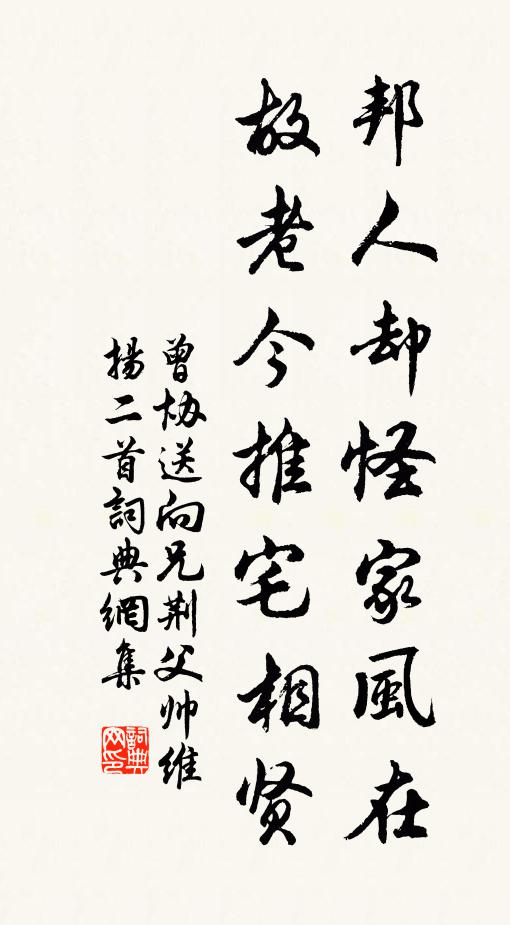 邦人却怪家風在
故老今推宅相贤
曾协送向兄荆父帅维
揚二首詞典網集
詞典
网印